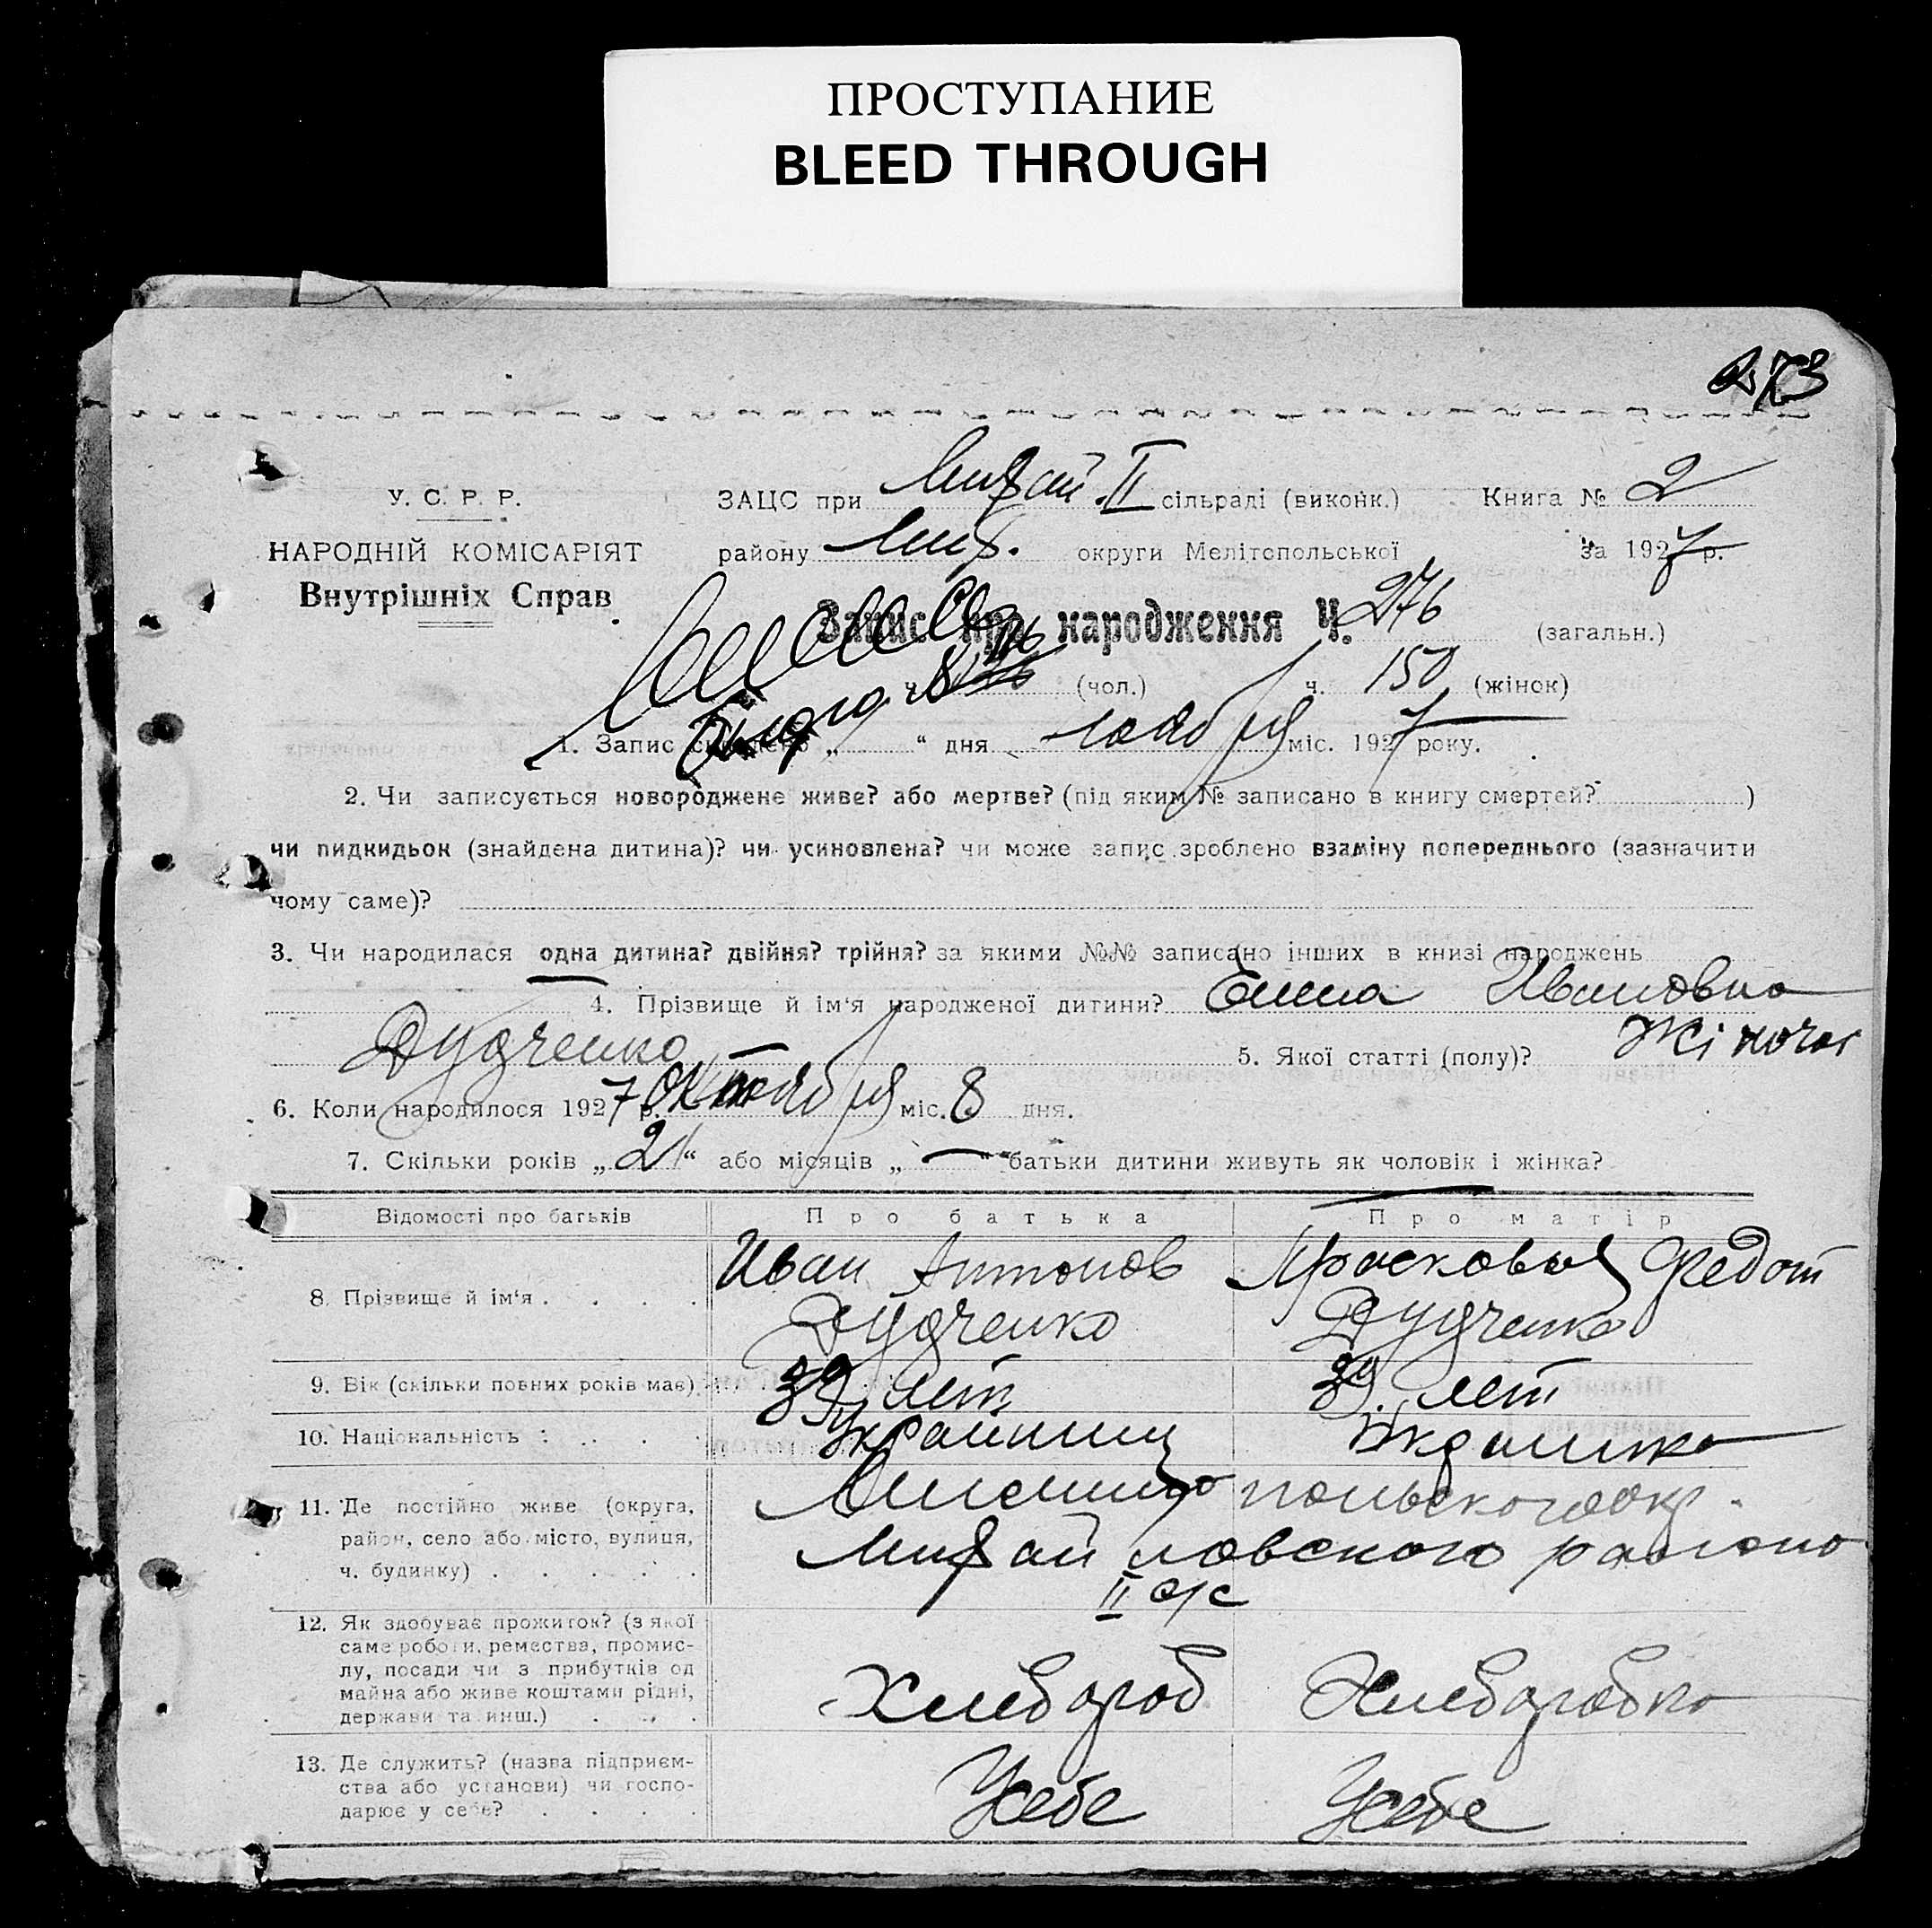 ПРОСТУПАНИЕ
BLEED THROUGH
273
У. С. Р. Р.
НАРОДНІЙ КОМІСАРІЯТ
Внутрішніх Справ
ЗАЦС при Михай. II сільраді (виконк.) Книга № 2
району Мих. округи Мелітопольської за 1927 р.
Запис про народження Ч. 276 (загальн.)
ч. (чол.) ч. 150 (жінок)
1. Запис складено „ “ дня міс. 1927 року.
2. Чи записується новороджене живе? або мертве? (під яким № записано в книгу смертей? )
чи пидкидьок (знайдена дитина)? чи усиновлена? чи може запис зроблено взаміну попереднього (зазначити
чому саме)?
3. Чи народилася одна дитина? двійня? трійня? за якими №№ записано інших в книзі народжень
4. Прізвище й ім‘я народженої дитини? Ивановна
Дудченко 5. Якої статті (полу)? Жіноча
6. Коли народилося 1927 р. Октября міс. 8 дня.
7. Скільки років „ 21 “ або місяців „ — “ батьки дитини живуть як чоловік і жінка?
Відомості про батьків Про батька Про матір
8. Прізвище й ім‘я . . . . Иван Антонов Прасковья Федот
Дудченко Дудченко
9. Вік (скільки повних років має) 39 лет 39 лет
10. Національність : . . . . Украинец Украинка
11. Де постійно живе (округа,
район, село або місто, вулиця,
ч. будинку) . . . . .
Мелитопольского окр.
Михайловского района
II с/с
12. Як здобуває прожиток? (з якої
саме роботи, ремества, промис-
лу, посади чи з прибутків од
майна або живе коштами рідні,
держави та инш.) . . .
Хлебороб Хлеборобка
13. Де служить? (назва підприєм-
ства або установи) чи госпо-
дарює у себе? . . . .
У себе У себе